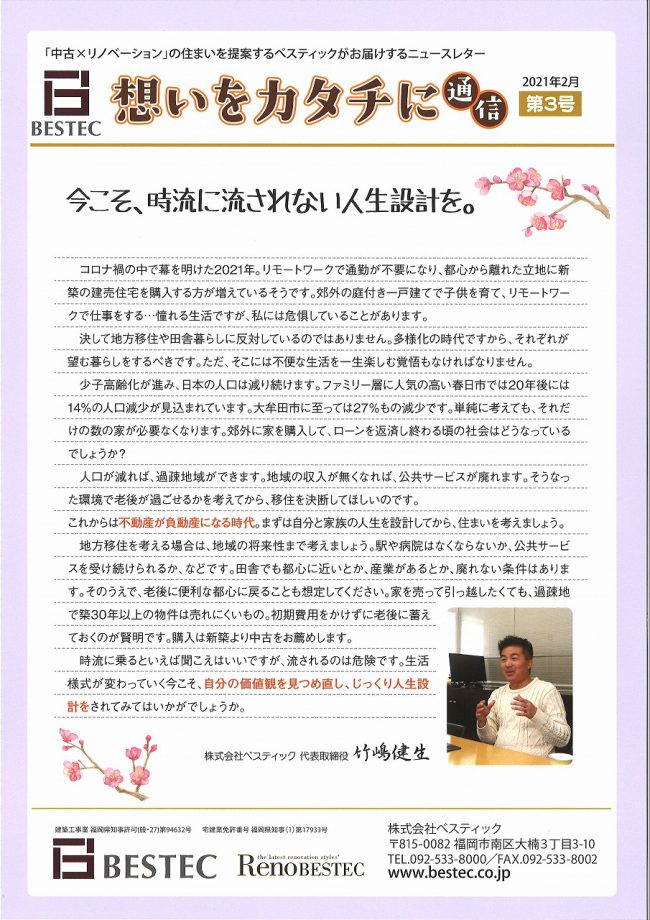 「中古×リノベーション」の住まいを提案するベスティックがお届けするニュースレター
BESTEC
想いをカタチに通信
2021年2月
第3号
今こそ、時流に流されない人生設計を。
コロナ禍の中で幕を明けた2021年。リモートワークで通勤が不要になり、都心から離れた立地に新
築の建売住宅を購入する方が増えているそうです。郊外の庭付き一戸建てで子供を育て、リモートワー
クで仕事をする…憧れる生活ですが、私には危惧していることがあります。
決して地方移住や田舎暮らしに反対しているのではありません。多様化の時代ですから、それぞれが
望む暮らしをするべきです。ただ、そこには不便な生活を一生楽しむ覚悟もなければなりません。
少子高齢化が進み、日本の人口は減り続けます。ファミリー層に人気の高い春日市では20年後には
14%の人口減少が見込まれています。大牟田市に至っては27%もの減少です。単純に考えても、それだ
けの数の家が必要なくなります。郊外に家を購入して、ローンを返済し終わる頃の社会はどうなっている
でしょうか?
人口が減れば、過疎地域ができます。地域の収入が無くなれば、公共サービスが廃れます。そうなっ
た環境で老後が過ごせるかを考えてから、移住を決断してほしいのです。
これからは不動産が負動産になる時代。まずは自分と家族の人生を設計してから、住まいを考えましょう。
地方移住を考える場合は、地域の将来性まで考えましょう。駅や病院はなくならないか、公共サービ
スを受け続けられるか、などです。田舎でも都心に近いとか、産業があるとか、廃れない条件はありま
す。そのうえで、老後に便利な都心に戻ることも想定してください。家を売って引っ越したくても、過疎地
で築30年以上の物件は売れにくいもの。初期費用をかけずに老後に蓄え
ておくのが賢明です。購入は新築より中古をお薦めします。
時流に乗るといえば聞こえはいいですが、流されるのは危険です。生活
様式が変わっていく今こそ、自分の価値観を見つめ直し、じっくり人生設
計をされてみてはいかがでしょうか。
株式会社ベスティック 代表取締役 竹嶋健生
建築工事業 福岡県知事許可(般・27)第94632号 宅建業免許番号 福岡県知事(1)第17933号
BESTEC
the latest renovation styles'
RENOBESTEC
株式会社ベスティック
〒815-0082 福岡市南区大楠3丁目3-10
TEL.092-533-8000/FAX.092-533-8002
www.bestec.co.jp